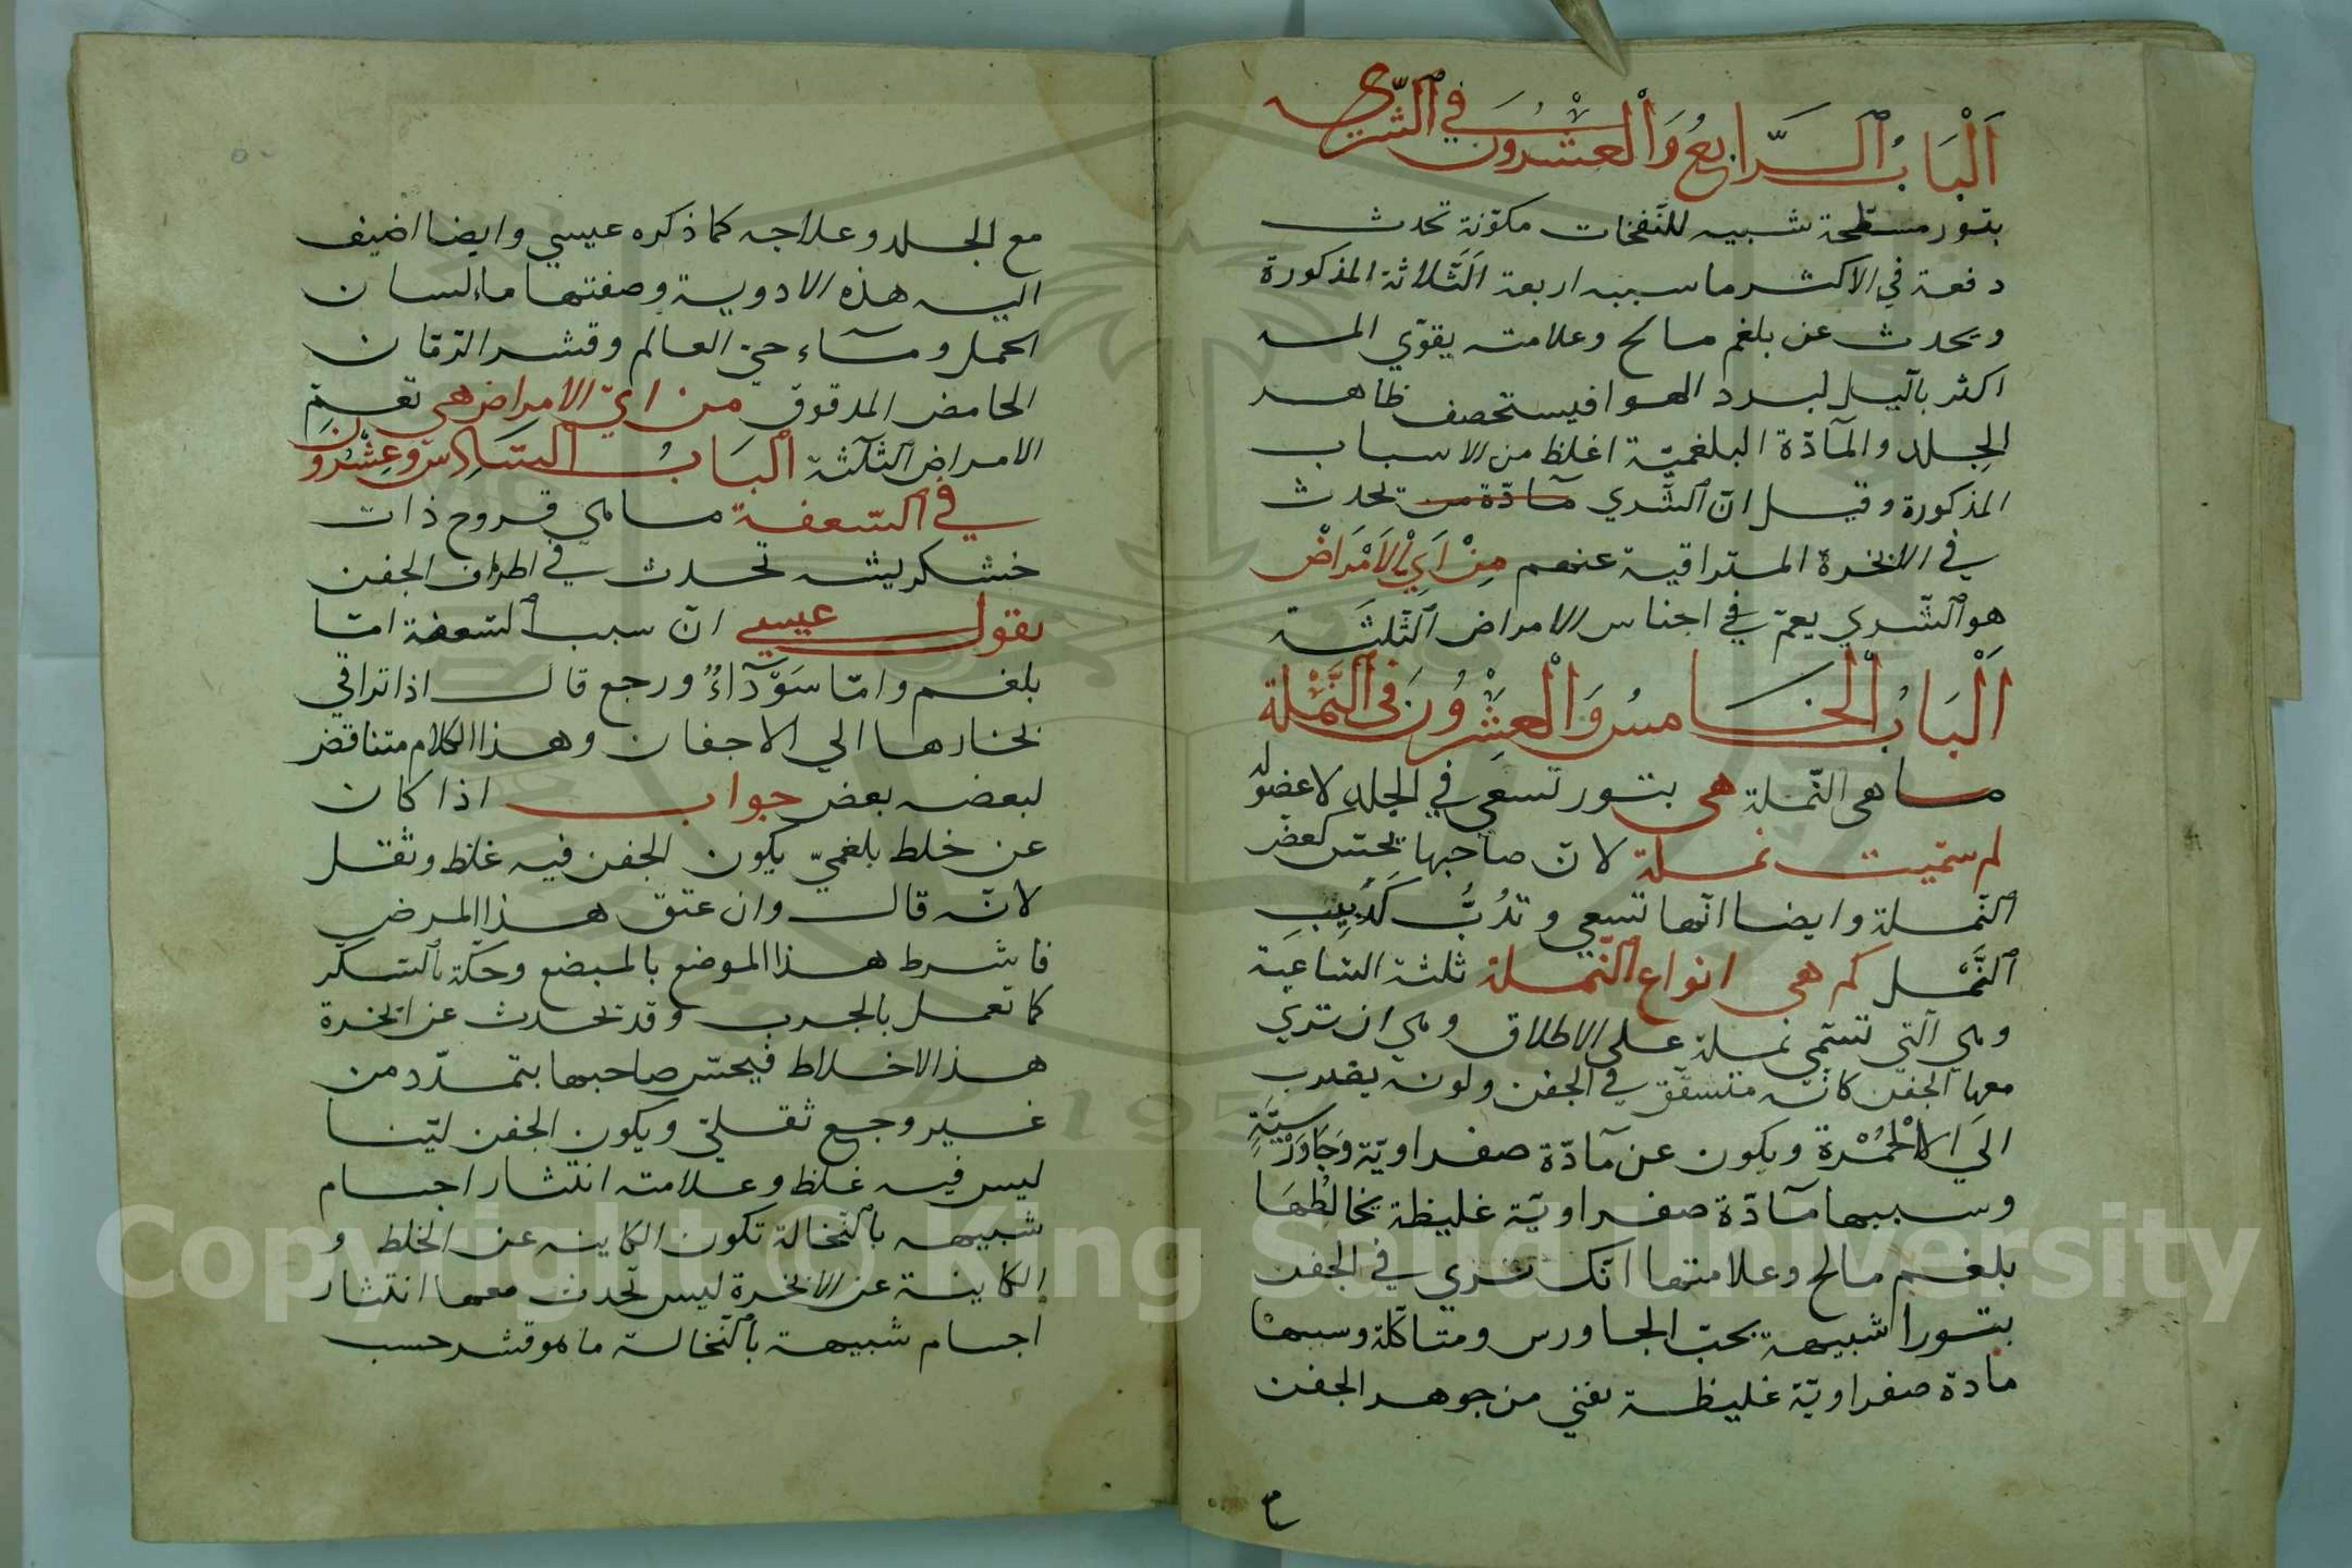 اَلْبَابُ الرَّابِعُ وَالْعِشْرُونَ فِي الشَّرَي
بثور مسطحة شبيه للنَّفخات مكوّنة تحدث
دفعة في الاكثر ما سببه اربعة الثَّلاثة المذكورة
ويحدث عن بلغم مالح وعلامته يقوّي المسه
اكثر بآليل لبرد الهوا فيستحصف ظاهر
الجلد والمآدّة البلغميّة اغلظ من الاسباب
المذكورة وقيل انّ الشَّري مآدّة من تحدث
في الابخرة المتراقية عنهم مِنْ اَيِّ الاَمْرَاضْ
هو الشَّري يعمّ في اجناس الامراض الثَّلثَة
اَلْبَابُ الْخَامِسُ وَالْعِشْرُونَ فِي النَّمْلَة
ما هى النّملة هى بثور تسعي في الجلد لا عضو له
لم سمّيت نملة لانّ صاحبها يحسّ كعضّ
النّملة وايضا انّها تسعي وتَدُبُّ كَدَبِيبِ
النَّمْل كم هى انواع النّملة ثلثة السّاعية
وهي آلتي تسمّي نملة على الاطلاق وهي ان تري
معها الجفن كانّه متشقّق في الجفن ولونه يضرب
الَي الاَلْحُمْرة ويكون عن مآدّة صفراويّة وَجَاوَرْسِيَّةٍ
وسببها مآدّة صفراويّة غليظة يخالِطُهَا
بلغم مالح وعلامتها انّك تري في الجفن
بثورا شبيهة بحبّ الجاورس ومتاكّلة وسببها
مادة صفراويّة غليظة تفني من جوهر الجفن
مع الجلد وعلاجه كما ذكره عيسي وايضا اضيف
اليه هذه الادوية وصفتها ماء لسان
الحمل ومآء حيّ العالم وقشر الرّمّان
الحامض المدقوق من ايّ الامراض هى تعمّ
الامراض الثّلثة اَلبَابُ السَّادِس وعِشْرُونَ
في السّعفة ما هي قروح ذات
خشكريشه تحدث في اطراف الجفن
يقول عيسي انّ سبب السّعفة امّا
بلغم وامّا سَوْدَآءٌ ورجع قال اذا تراقي
بخارها الي الاجفان وهذا الكلام متناقض
لبعضه بعض جواب اذا كان
عن خلط بلغميّ يكون الجفن فيه غلظ وثقل
لانّه قال وان عتق هذا المرض
فاشرط هذا الموضع بالمبضع وحكّه بالسّكّر
كما تعمل بالجرب وقد تحدث عن ابخرة
هذ الاخلاط فيحسّ صاحبها بتمدّد من
غير وجع ثقليّ ويكون الجفن ليّنا
ليس فيه غلظ وعلامته انتثار اجسام
شبيهه بالنّخالة تكون الكاينه عن الخلط و
الكاينة عن الابخرة ليس تحدث معها انتثار
اجسام شبيهة بالنّخالة ما هو قشر حسب
Copyright © King Saud University
195